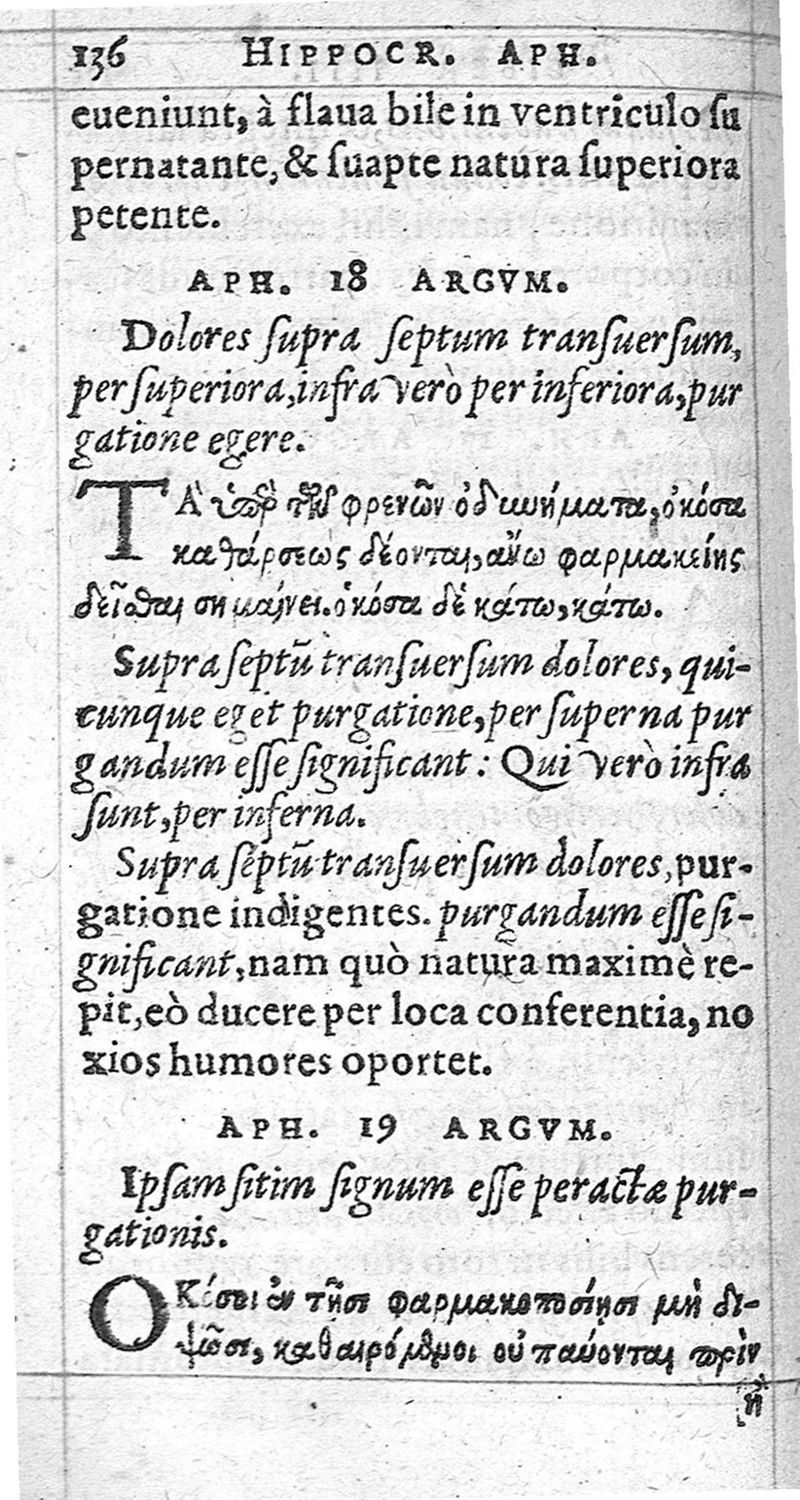 136 HIPPOCR. APH.
eueniunt, à flaua bile in ventriculo ſu
pernatante, & ſuapte natura ſuperiora
petente.
APH. 18 ARGVM.
Dolores ſupra ſeptum tranſuerſum,
per ſuperiora, infra verò per inferiora, pur
gatione egere.
ΤᾺ ὑπὲρ τῶν φρενῶν ὀδυνήματα, ὁκόσα
καθάρσεως δέονται, ἄνω φαρμακείης
δεῖσθαι σημαίνει. ὁκόσα δὲ κάτω, κάτω.
Supra ſeptū tranſuerſum dolores, qui-
cunque eget purgatione, per ſuperna pur
gandum eſſe ſignificant: Qui verò infra
ſunt, per inferna.
Supra ſeptū tranſuerſum dolores, pur-
gatione indigentes. purgandum eſſe ſi-
gnificant, nam quò natura maximè re-
pit, eò ducere per loca conferentia, no
xios humores oportet.
APH. 19 ARGVM.
Ipſam ſitim ſignum eſſe peractæ pur-
gationis.
ΟΚόσοι ἐν τῇσι φαρμακοποσίῃσι μὴ δι-
ψῶσι, καθαιρόμενοι οὐ παύονται πρὶν
ἢ